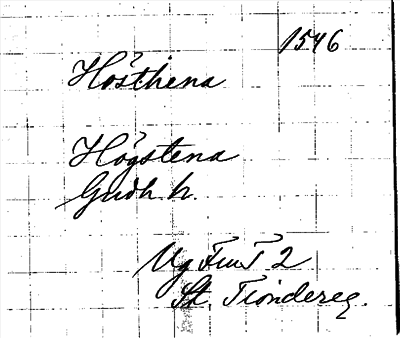 1546
Hösthena
Högstena
Gudh h.
Vg FmT 2
St. Tiondereg.